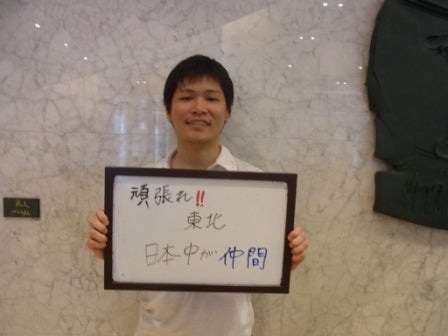 頑張れ!!
東北
日本中が仲間